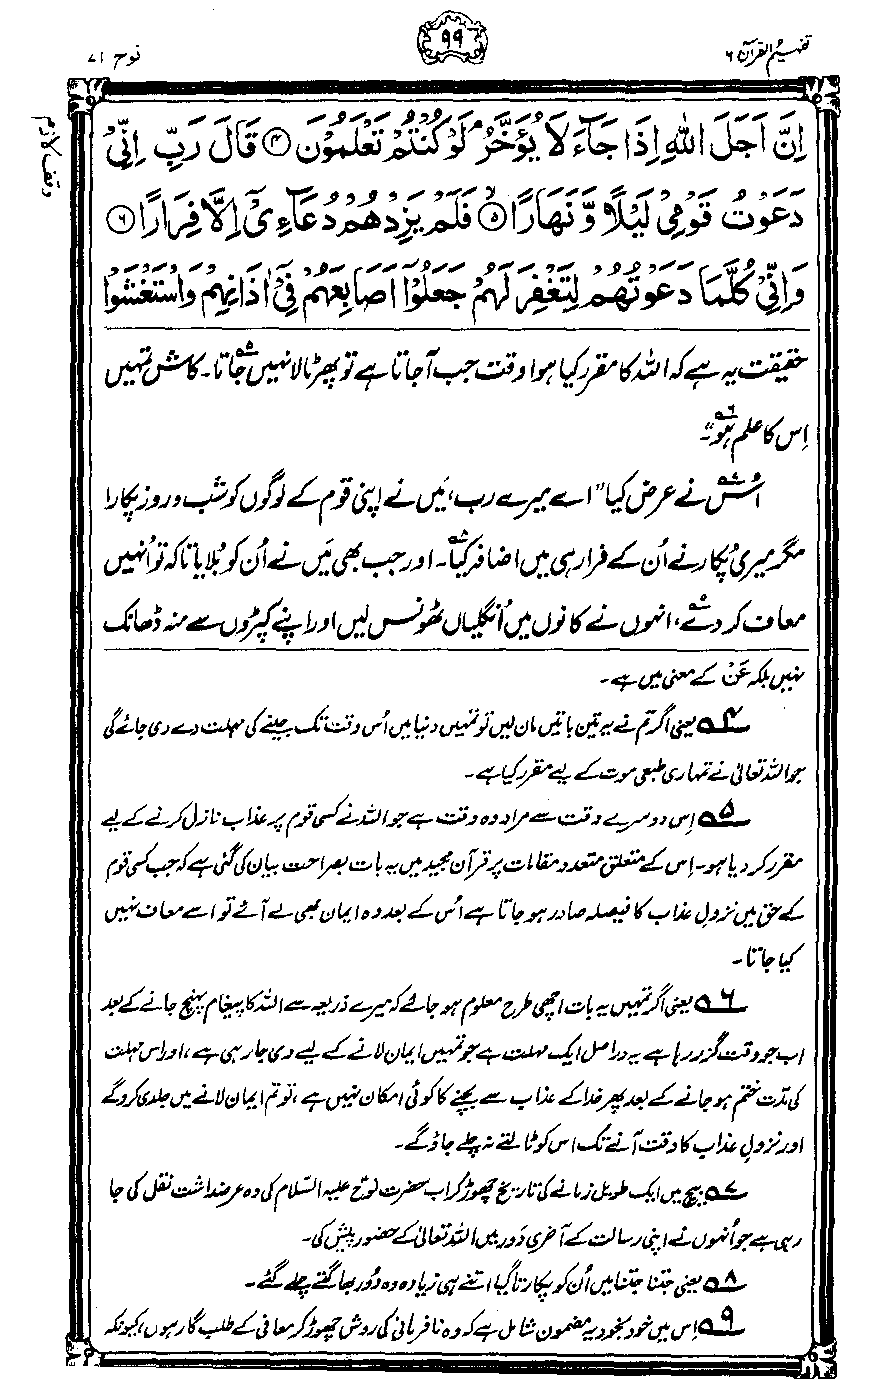 تفہیم القرآن ۶
۹۹
نوح ۷۱
وقف لازم
اِنَّ اَجَلَ اللّٰهِ اِذَا جَآءَ لَا یُؤَخَّرُ ۘ لَوْ كُنْتُمْ تَعْلَمُوْنَ ﴿۴﴾ قَالَ رَبِّ اِنِّیْ
دَعَوْتُ قَوْمِیْ لَیْلًا وَّ نَهَارًا ﴿۵﴾ فَلَمْ یَزِدْهُمْ دُعَآءِیْۤ اِلَّا فِرَارًا ﴿۶﴾
وَ اِنِّیْ كُلَّمَا دَعَوْتُهُمْ لِتَغْفِرَ لَهُمْ جَعَلُوْۤا اَصَابِعَهُمْ فِیْۤ اٰذَانِهِمْ وَ اسْتَغْشَوْا
حقیقت یہ ہے کہ اللہ کا مقرر کیا ہوا وقت جب آجاتا ہے تو پھر ٹالا نہیں جاتا۵۔ کاش تمہیں
اِس کا علم ہو۶“۔
اُس۷ نے عرض کیا ”اے میرے رب، مَیں نے اپنی قوم کے لوگوں کو شب و روز پکارا
مگر میری پکار نے اُن کے فرار ہی میں اضافہ کیا۸۔ اور جب بھی مَیں نے اُن کو بلایا تاکہ تو اُنہیں
معاف کر دے۹، انہوں نے کانوں میں اُنگلیاں ٹھونس لیں اور اپنے کپڑوں سے منہ ڈھانک
نہیں بلکہ عَنْ کے معنی میں ہے۔
۴ یعنی اگر تم نے یہ تین باتیں مان لیں تو تمہیں دنیا میں اُس وقت تک جینے کی مہلت دے دی جائے گی
جو اللہ تعالیٰ نے تمہاری طبعی موت کے لیے مقرر کیا ہے۔
۵ اِس دوسرے وقت سے مراد وہ وقت ہے جو اللہ نے کسی قوم پر عذاب نازل کرنے کے لیے
مقرر کر دیا ہو۔ اِس کے متعلق متعدد مقامات پر قرآن مجید میں یہ بات بصراحت بیان کی گئی ہے کہ جب کسی قوم
کے حق میں نزولِ عذاب کا فیصلہ صادر ہو جاتا ہے اُس کے بعد وہ ایمان بھی لے آئے تو اسے معاف نہیں
کیا جاتا۔
۶ یعنی اگر تمہیں یہ بات اچھی طرح معلوم ہو جائے کہ میرے ذریعہ سے اللہ کا پیغام پہنچ جانے کے بعد
اب جو وقت گزر رہا ہے یہ دراصل ایک مہلت ہے جو تمہیں ایمان لانے کے لیے دی جا رہی ہے، اور اس مہلت
کی مدّت ختم ہو جانے کے بعد پھر خدا کے عذاب سے بچنے کا کوئی امکان نہیں ہے، تو تم ایمان لانے میں جلدی کرو گے
اور نزولِ عذاب کا وقت آنے تک اس کو ٹالتے نہ چلے جاؤ گے۔
۷ بیچ میں ایک طویل زمانے کی تاریخ چھوڑ کر اب حضرت نوح علیہ السّلام کی وہ عرضداشت نقل کی جا
رہی ہے جو اُنہوں نے اپنی رسالت کے آخری دَور میں اللہ تعالیٰ کے حضور پیش کی۔
۸ یعنی جتنا جتنا میں اُن کو پکارتا گیا اتنے ہی زیادہ وہ دُور بھاگتے چلے گئے۔
۹ اِس میں خود بخود یہ مضمون شامل ہے کہ وہ نافرمانی کی روش چھوڑ کر معافی کے طلب گار ہوں، کیونکہ